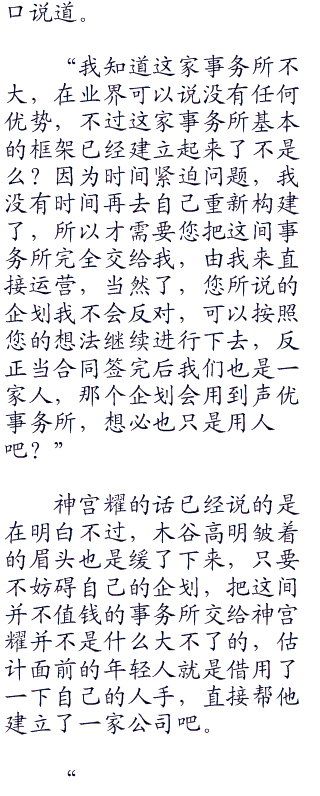 口说道。
“我知道这家事务所不
大，在业界可以说没有任何
优势，不过这家事务所基本
的框架已经建立起来了不是
么？因为时间紧迫问题，我
没有时间再去自己重新构建
了，所以才需要您把这间事
务所完全交给我，由我来直
接运营，当然了，您所说的
企划我不会反对，可以按照
您的想法继续进行下去，反
正当合同签完后我们也是一
家人，那个企划会用到声优
事务所，想必也只是用人
吧？”
神宫耀的话已经说的是
在明白不过，木谷高明皱着
的眉头也是缓了下来，只要
不妨碍自己的企划，把这间
并不值钱的事务所交给神宫
耀并不是什么大不了的，估
计面前的年轻人就是借用了
一下自己的人手，直接帮他
建立了一家公司吧。
“